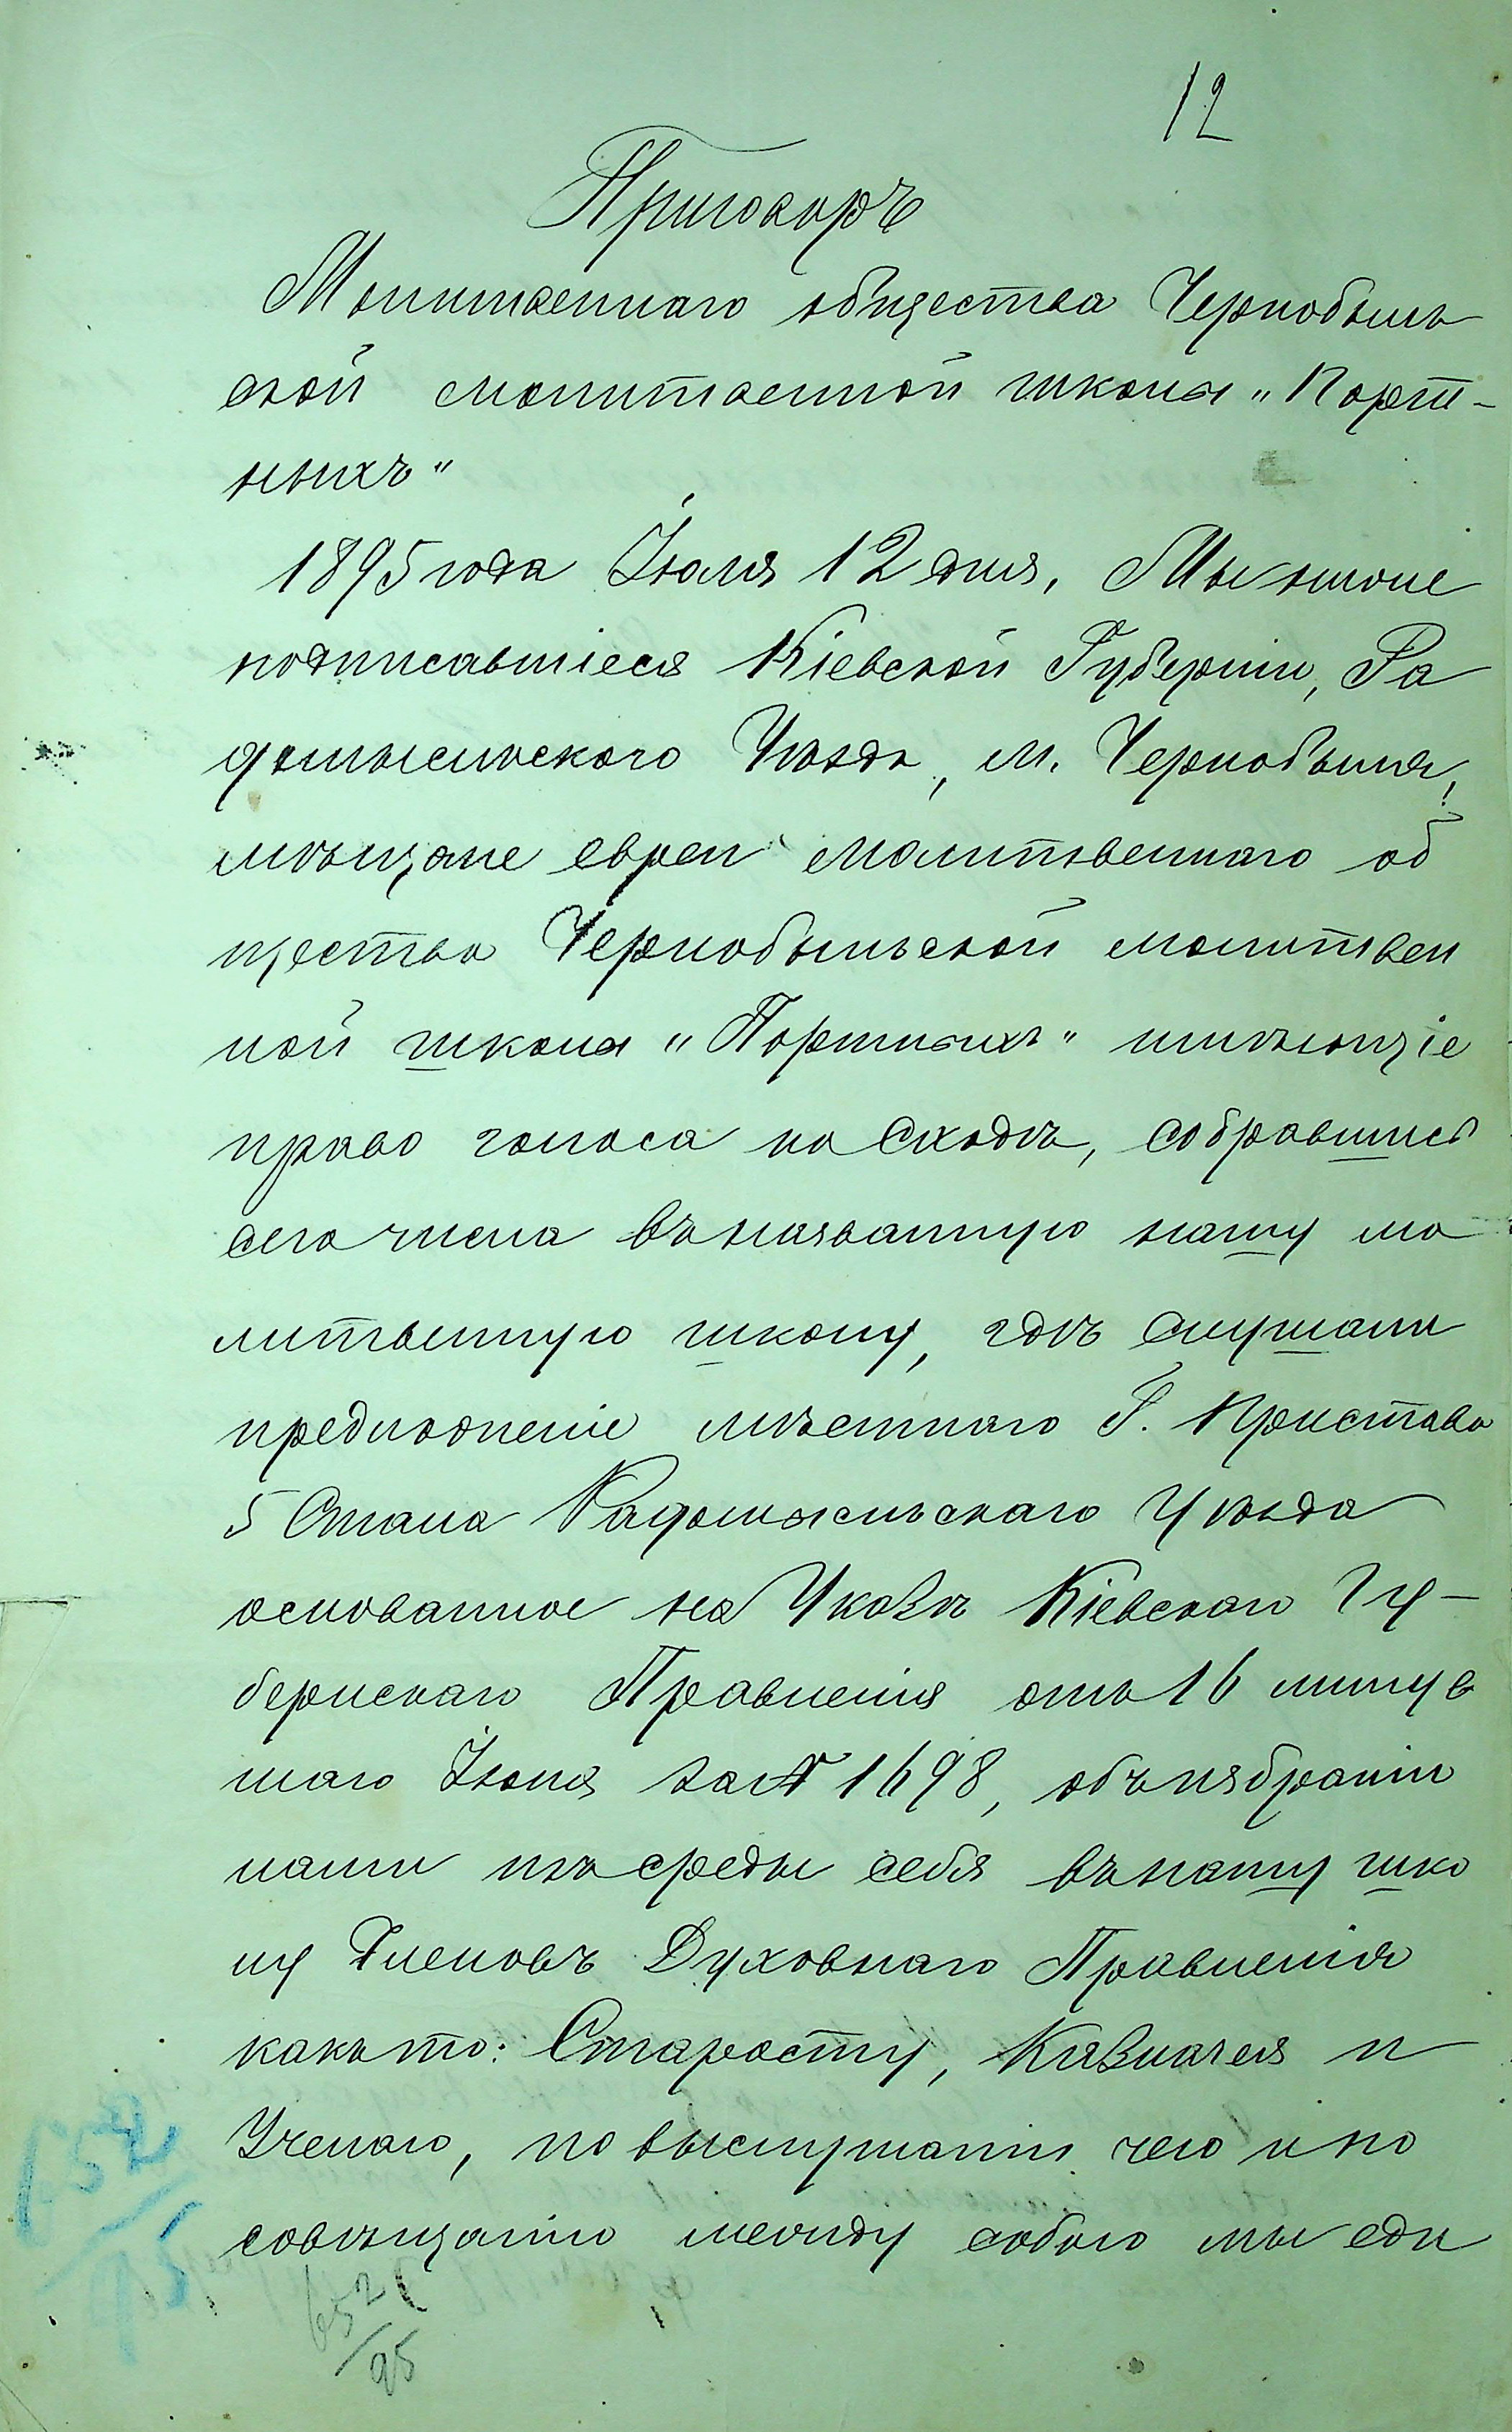 12
Приговоръ
Молитвеннаго общества Чернобыль
ской молитвенной школы „Порт-
ныхъ"
1895 года Іюля 12 дня, Мы ниже
подписавшіеся Кіевской Губерніи, Ра
домысльского Уѣзда, м. Чернобыля,
мѣщане евреи молитвеннаго об
щества Чернобыльской молитвен
ной школы „Портныхъ" имѣющіе
право голоса на сходѣ, собравшись
сего числа въ названную нашу мо
литвенную школу, гдѣ слушали
предложеніе мѣстнаго Г. Пристава
5 Стана Радомысльскаго Уѣзда
основанное на Указѣ Кіевскаго Гу-
бернскаго Правленія отъ 16 минув
шаго Іюня за № 1698, объ избраніи
нами изъ среды себя въ нашу шко
лу Членовъ Духовнаго Правленія
какъ то: Старосту, Казначея и
Ученаго, по выслушаніи чего и по
совѣщанію между собою мы еди
652/95
652/95